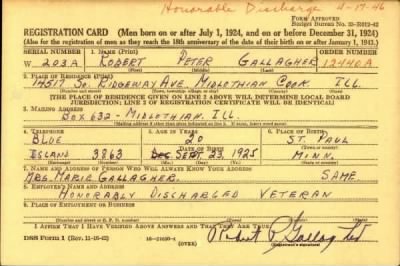 Honorable Discharge 4-17-46
FORM APPROVED
REGISTRATION CARD (Men born on or after July 1, 1924, and on or before December 31, 1924)
(Also for the registration of men as they reach the 18th anniversary of the date of their birth on or after January 1, 1943.)
SERIAL NUMBER 1. NAME (Print) ORDER NUMBER
W 203A ROBERT PETER GALLAGHER 12440A
(First) (Middle) (Last)
2. PLACE OF RESIDENCE (Print)
14517 So. RIDGEWAY AVE. MIDLOTHIAN COOK ILL.
(Number and street) (Town, township, village, or city) (County) (State)
[THE PLACE OF RESIDENCE GIVEN ON LINE 2 ABOVE WILL DETERMINE LOCAL BOARD
JURISDICTION; LINE 2 OF REGISTRATION CERTIFICATE WILL BE IDENTICAL]
3. MAILING ADDRESS
BOX 632 - MIDLOTHIAN, ILL.
(Mailing address if other than place indicated on line 2. If same, insert word same)
4. TELEPHONE 5. AGE IN YEARS 6. PLACE OF BIRTH
BLUE 20 ST. PAUL
DATE OF BIRTH (Town or county)
ISLAND 3863 SEPT 23, 1925 MINN.
(Exchange) (Number) (Mo.) (Day) (Yr.) (State or country)
7. NAME AND ADDRESS OF PERSON WHO WILL ALWAYS KNOW YOUR ADDRESS
MRS. MARIE GALLAGHER. SAME
8. EMPLOYER'S NAME AND ADDRESS
HONORABLY DISCHARGED VETERAN
9. PLACE OF EMPLOYMENT OR BUSINESS
(Number and street or R. F. D. number) (Town) (County) (State)
I AFFIRM THAT I HAVE VERIFIED ABOVE ANSWERS AND THAT THEY ARE TRUE.
DSS Form 1 (Rev. 11-16-42) (OVER) Robert P. Gallagher
(Registrant's signature)